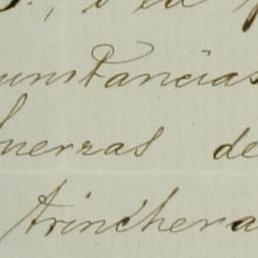 unstancias
Guerras de
trinchera